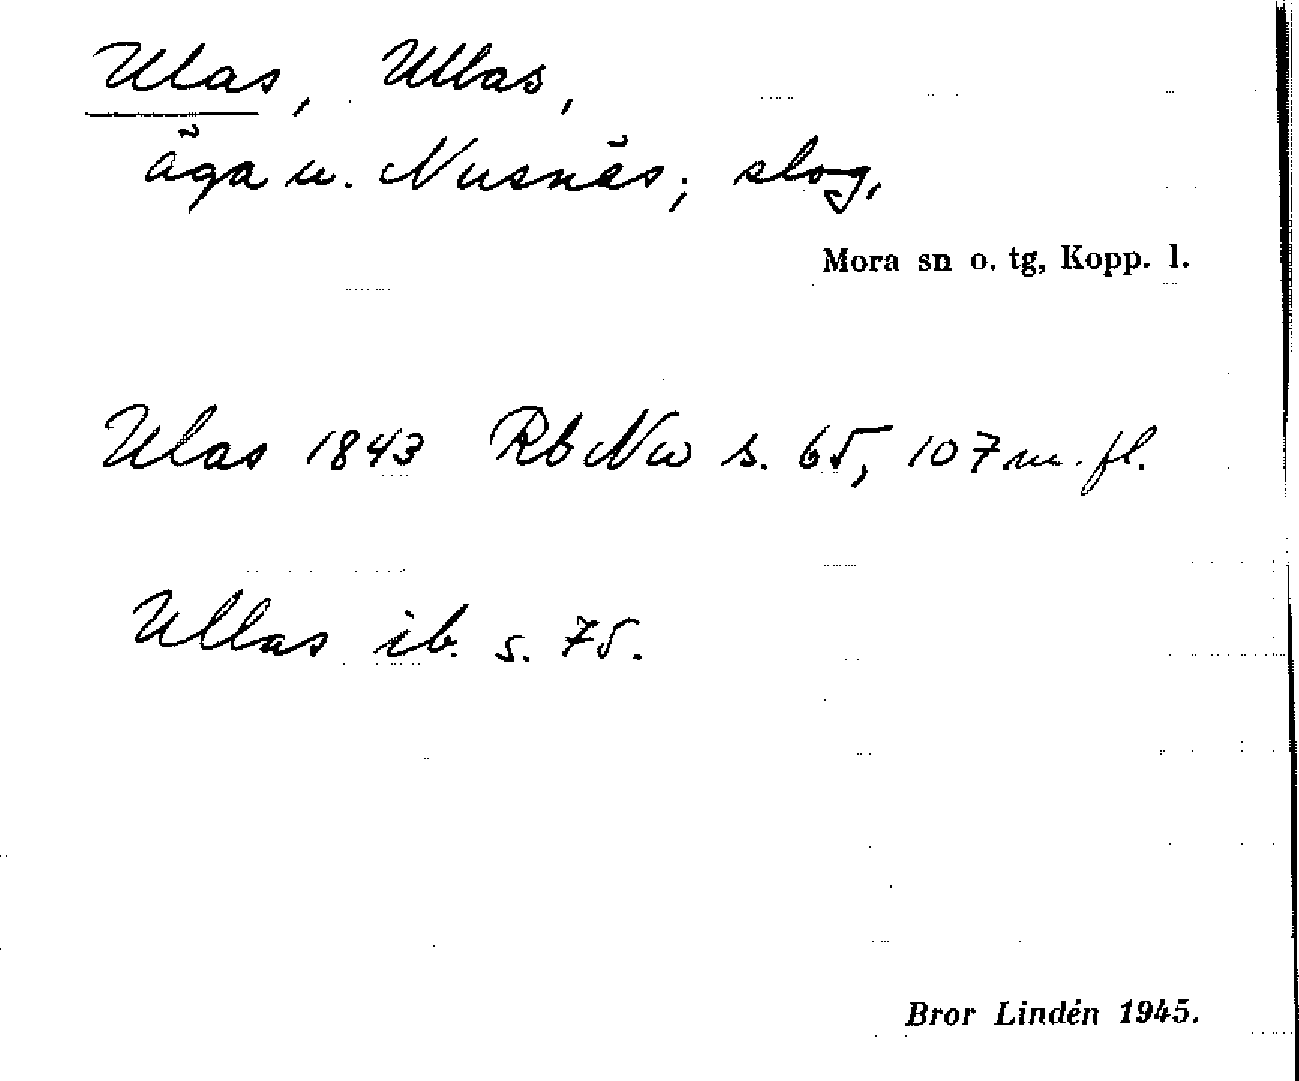 Ulas, Ullas,
äga u. Nusnäs; slog,
Mora sn o. tg, Kopp. l.
Ulas 1843 Rb Nw s. 65, 107 m. fl.
Ullas ib. s. 75.
Bror Lindén 1945.